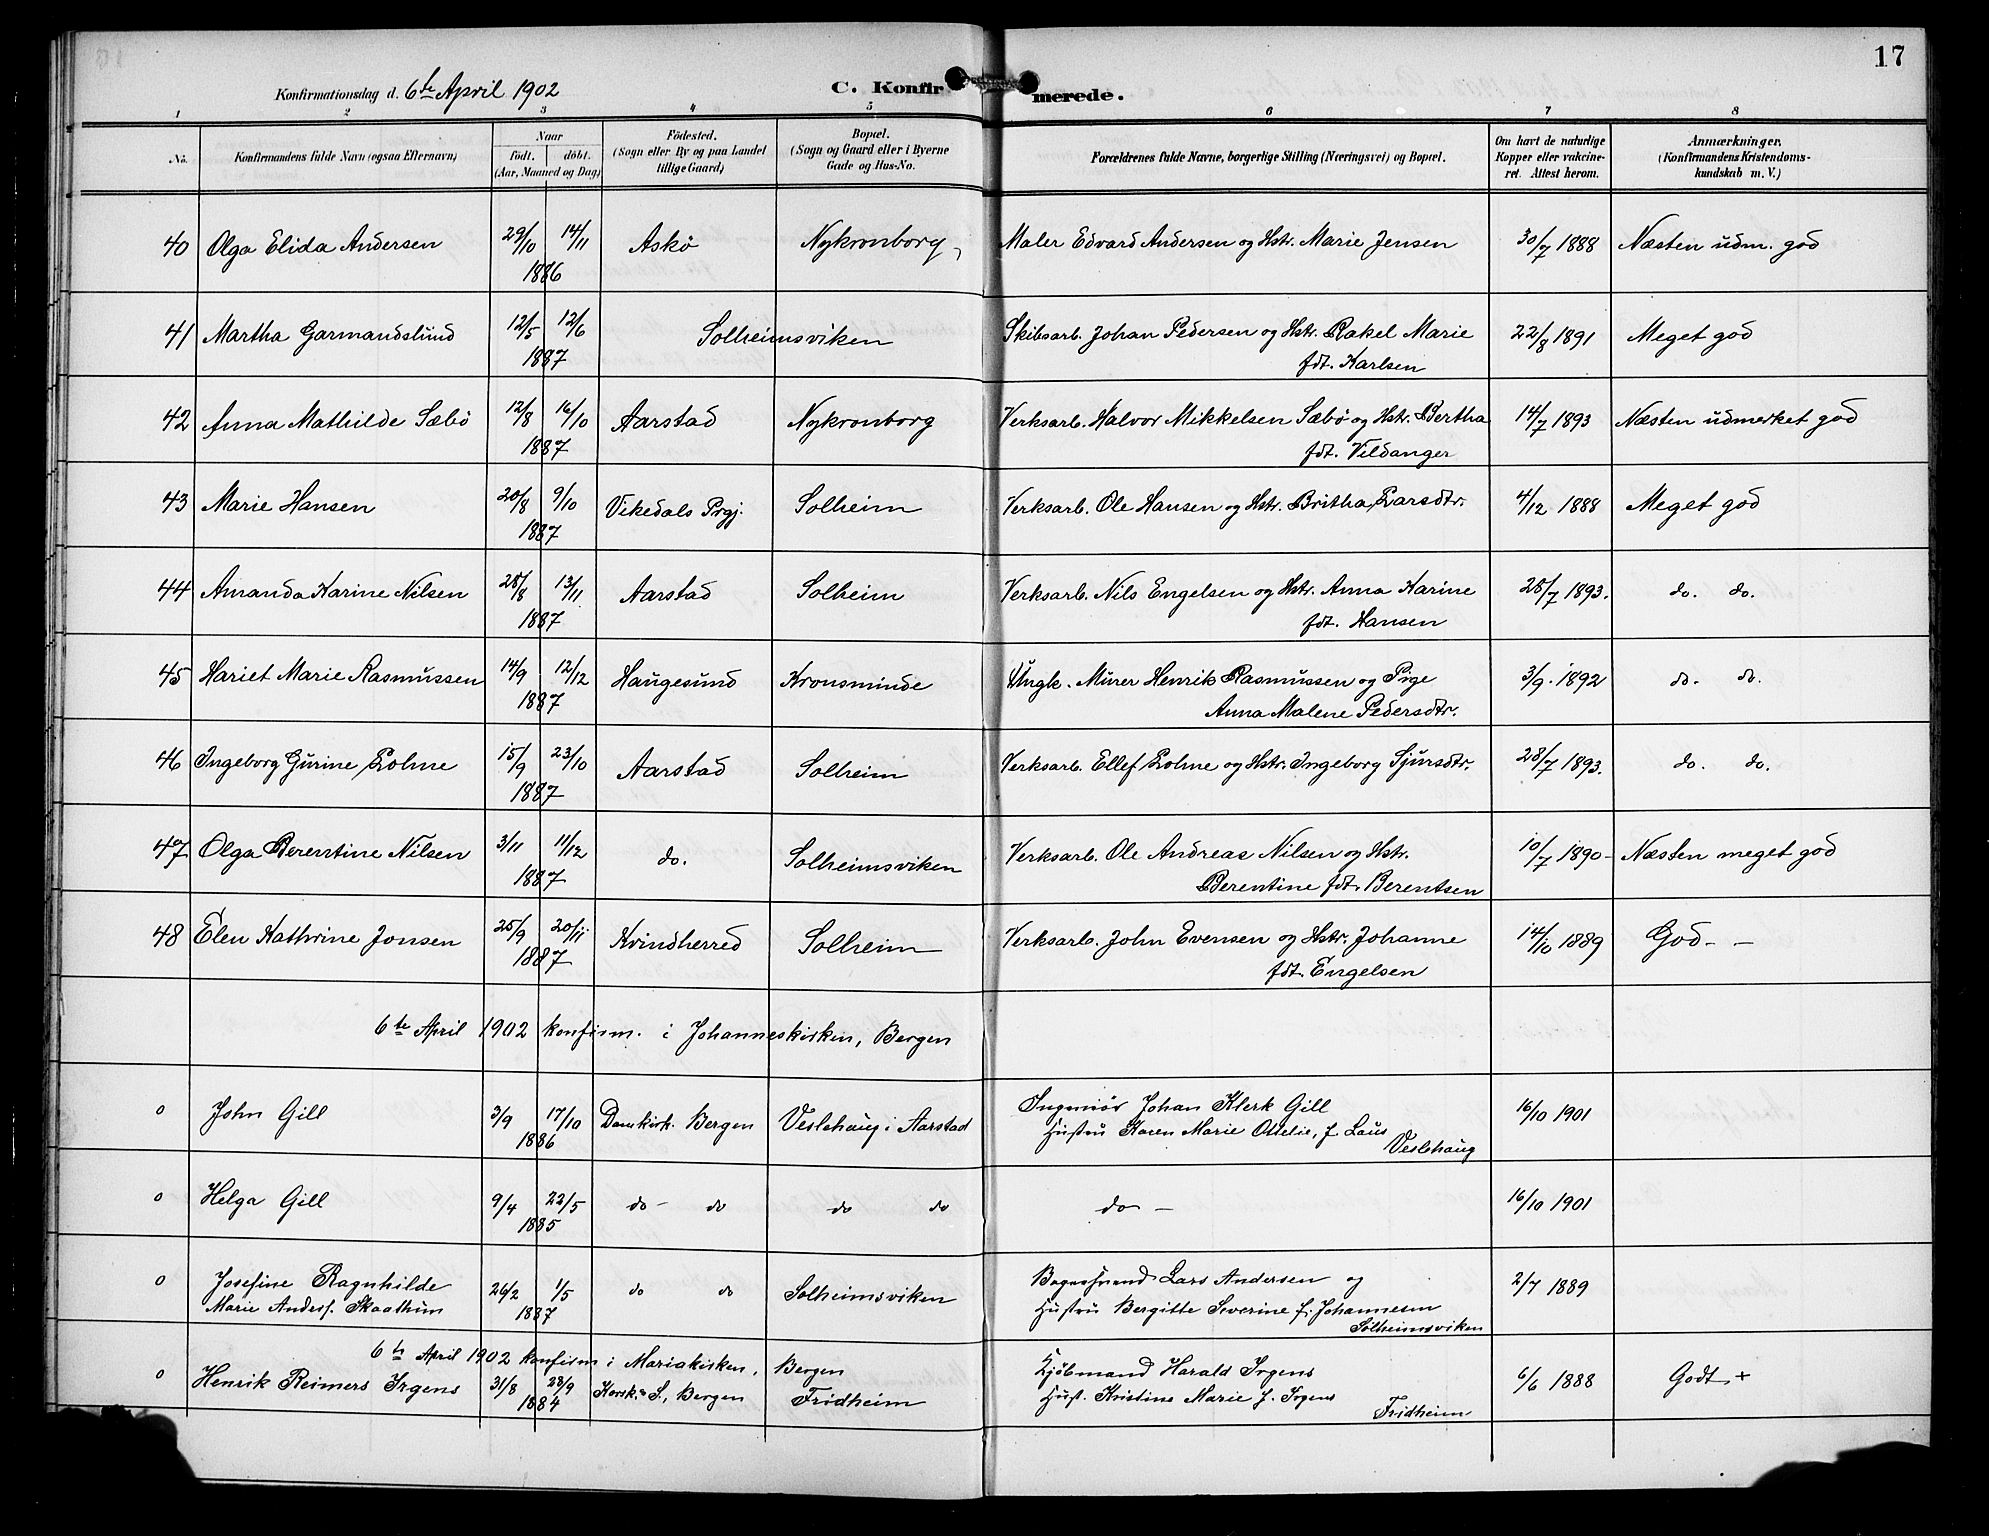 17
Konfirmationsdag d. 6te April 1902 C. Konfirmerede.
1 2 3 4 5 6 7 8
No. Konfirmandens fulde Navn (ogsaa Efternavn) Naar födt. döbt. (Aar, Maaned og Dag) Födested. (Sogn eller By og paa Landet tillige Gaard) Bopæl. (Sogn og Gaard eller i Byerne Gade og Hus-No. Forældrenes fulde Navne, borgerlige Stilling (Næringsvei) og Bopæl. Om havt de naturlige Kopper eller vakcineret. Attest herom. Anmærkninger. (Konfirmandens Kristendomskundskab m. V.)
40 Olga Elida Andersen 29/10 14/11 Askö Nykronborg, Maler Edvard Andersen og Hstr. Marie Jensen 30/7 1888 Næsten udm. god
1886
41 Martha Garmandslund 12/5 12/6 Solheimsviken Skibsarb. Johan Pedersen og Hstr. Rakel Marie 22/8 1891 Meget god
1887 fdt. Karlsen
42 Anna Mathilde Sæbö 12/8 16/10 Aarstad Nykronborg Verksarb. Halvor Mikkelsen Sæbö og Hstr. Bertha 14/7 1893 Næsten udmerket god
1887 fdt. Vildanger
43 Marie Hansen 20/8 9/10 Vikedals Prgj. Solheim Verksarb. Ole Hansen og Hstr. Britha Larsdtr. 4/12 1888 Meget god
1887
44 Amanda Karine Nilsen 28/8 13/11 Aarstad Solheim Verksarb. Nils Engelsen og Hstr. Anna Karine 28/7 1893. do. do.
1887 fdt. Hansen
45 Hariet Marie Rasmussen 14/9 12/12 Haugesund Kronsminde Ungk. Murer Henrik Rasmussen og Pige 3/9. 1892 do. do.
1887 Anna Malene Pedersdtr.
46 Ingeborg Gurine Lohne 15/9 23/10 Aarstad Solheim Verksarb. Ellef Lohne og Hstr. Ingeborg Sjursdtr. 28/7 1893. do. do.
1887
47 Olga Berentine Nilsen 3/11 11/12 do. Solheimsviken Verksarb. Ole Andreas Nilsen og Hstr. 10/7 1890 - Næsten meget god
1887 Berentine fdt. Berentsen
48 Elen Kathrine Jonsen 25/9 20/11 Kvindherred Solheim Verksarb. John Evensen og Hstr. Johanne 14/10 1889 God - -
1887 fdt. Engelsen
6te April 1902 konfirm. i Johanneskirken, Bergen
o John Gill 3/9 17/10 Domkirk. Bergen Veslehaug i Aarstad Ingeniör Johan Klerk Gill 16/10 1901
1886 Hustru Karen Marie Ottelie, f. Laus
Veslehaug
o Helga Gill 9/4 22/5 do - do do do do - 16/10 1901
1885
o Josefine Ragnhilde 26/2 1/5 do do Solheimsviken Lars Andersen og 2/7 1889
Marie Anders. Skaathun 1887 Hustru Bergitte Severine f. Johannesen
Solheimsviken
6te April 1902 konfirm i Mariakirken, Bergen
o Henrik Reimers Irgens 31/8 28/9 Korsk. S., Bergen Fridheim Kjöbmand Harald Irgens 6/6 1888 Godt +
1884 Hust. Kristine Marie f. Irgens
Fridheim